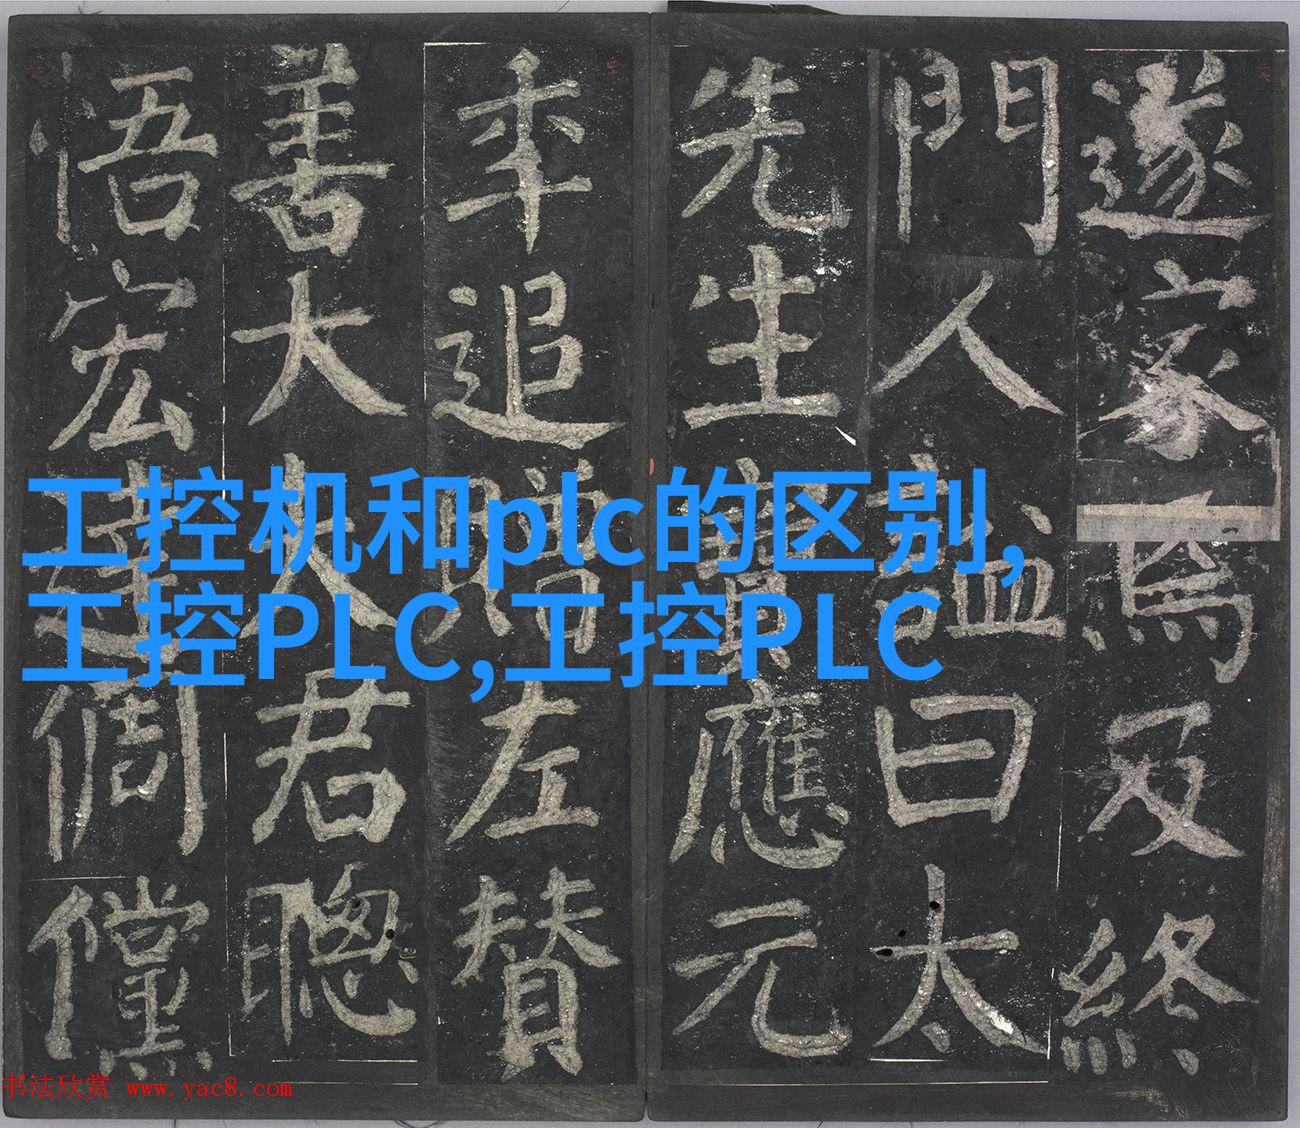 遂家焉及終
門人謚曰太
先生寶應元
年追贈左贊
善大夫君聰
悟宏達倜儻
工控机和plc的区别,
工控PLC,工控PLC
书法欣赏 www.yac8.com